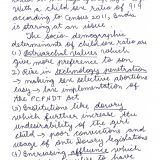 with a child sex ratio of 919
according to Census 2011, India
is staring at an issue.
The socio-demographic
determinants of child sex ratio are
(1) Patriarchal values which
give more preference to son
(2) Rise in technology penetration
→ making sex selective abortions
easy → low implementation
of the PCPNDT Act
(3) Institutions like dowry
which further increase the
undesirability of the girl
child → poor convictions and
usage of anti dowry legislations
(4) Increasing affluence which
to have